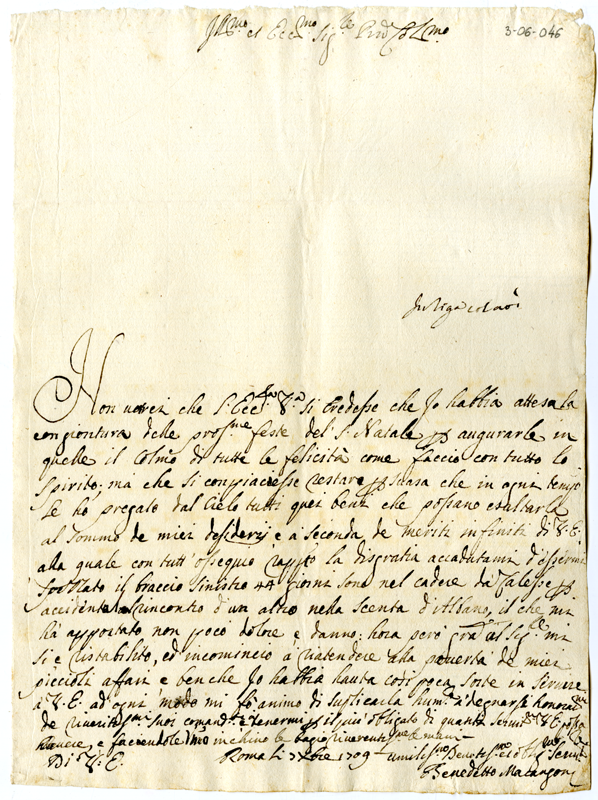 Ill.mo et Ecc.mo Sig.re Prõn Col.mo
3-06-046
Non vorrei che S. Ecc.za V.a si credesse che Jo habbia attesa la
congiontura delle pross.me feste del S. Natale per augurarle in
quelle il Colmo di tutte le felicità come faccio con tutto lo
spirito; mà che si compiacesse restare persuasa che in ogni tempo
Le hò pregato dal Cielo tutti quei beni che possano esaltarla
al sommo de miei desiderij e à seconda de meriti infiniti di V.E.
alla quale con tutt'ossequio rapp.to la disgratia accadutami d'essermi
il braccio sinistro 44 giorni sono nel cadere di Calesse per
accidental rincontro d'un altro nella scenta d'Albano, il che mi
hà apportato non poco dolore e danno; hora però gra. al Sig.re mi
si è ristabilito, ed incomincio à riatendere alla povertà de miei
piccioli affari e ben che Jo habbia hauta così poca sorte in servire
à V.E. ad ogni modo mi fò animo di suplicarla hum.te à degnarsi honorarmi
de riveritis.mi suoi comandi, e tenermi per il più obligato di quanti Servid.ri V.E. possa
havere, e faciendole inchino le bagio riverentem.te le mani
Di V.E. Roma Li 7 Xbre 1709 umiliss.mo Devotiss.mo ed Obg.mo Servit.re
Benedetto Matangoni